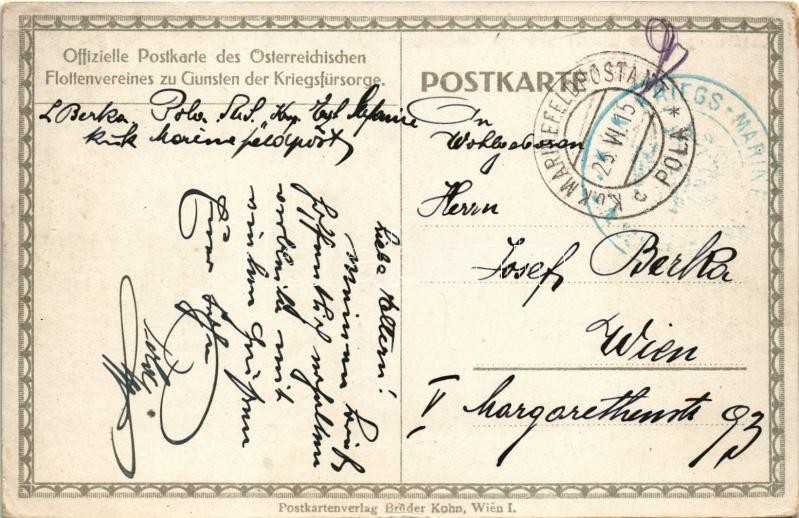 Offizielle Postkarte des Österreichischen
Flottenvereines zu Gunsten der Kriegsfürsorge.
POSTKARTE
K.u.K. MARINEFELDPOSTAMT * POLA
25. VI. 15
KRIEGS-MARINE
L Berka. Pola. S.M.S. Erzh Stefanie
k.u.k Marinefeldpost
An
Wohlgeboren
Herrn
Josef Berka
Wien
V Margarethenstr 93
Liebe Eltern!
hoffentlich erhalten
verbleibt mit
vielen Grüßen
Euer Sohn
Postkartenverlag Brüder Kohn, Wien I.